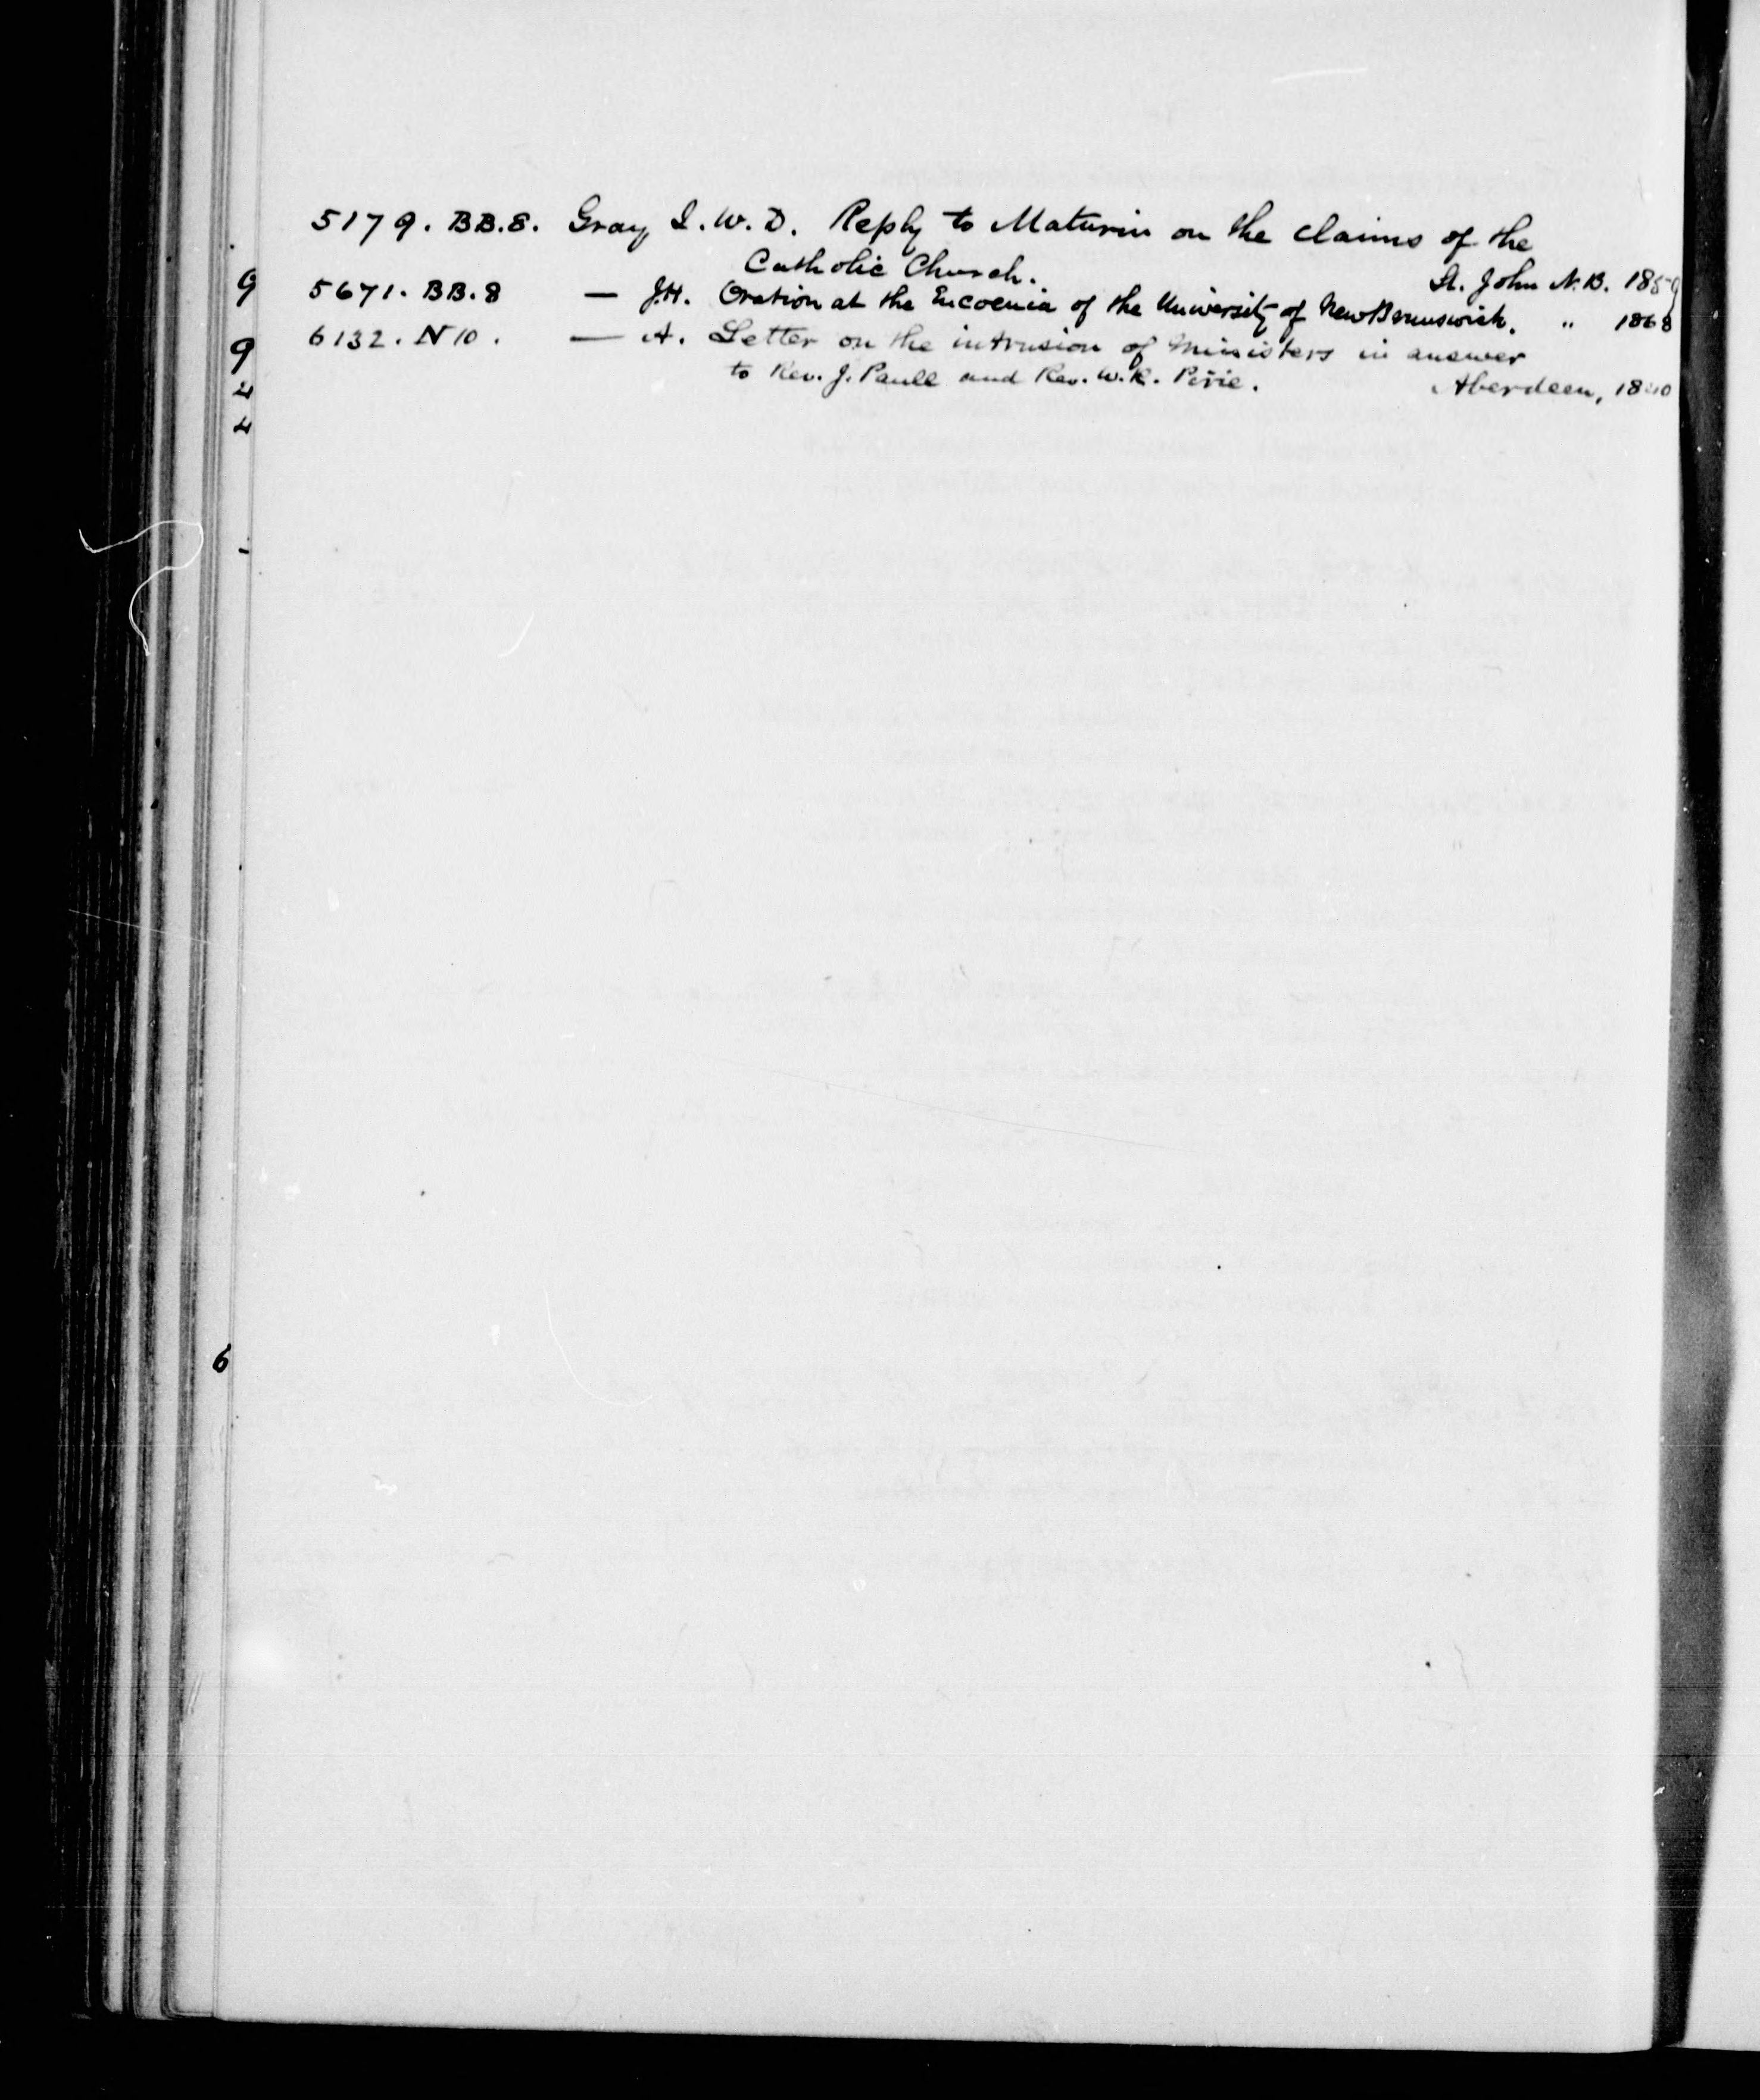 5179. BB.8. Gray I. W. D. Reply to Maturin on the claims of the
Catholic Church. St. John N.B. 1859
5671. BB.8 — J.H. Oration at the Encoenia of the University of New Brunswick. " 1868
6132. N 10. — A. Letter on the intrusion of Ministers in answer
to Rev. J. Paull and Rev. W. R. Pirie. Aberdeen, 1840
9
9
4
4
-
6